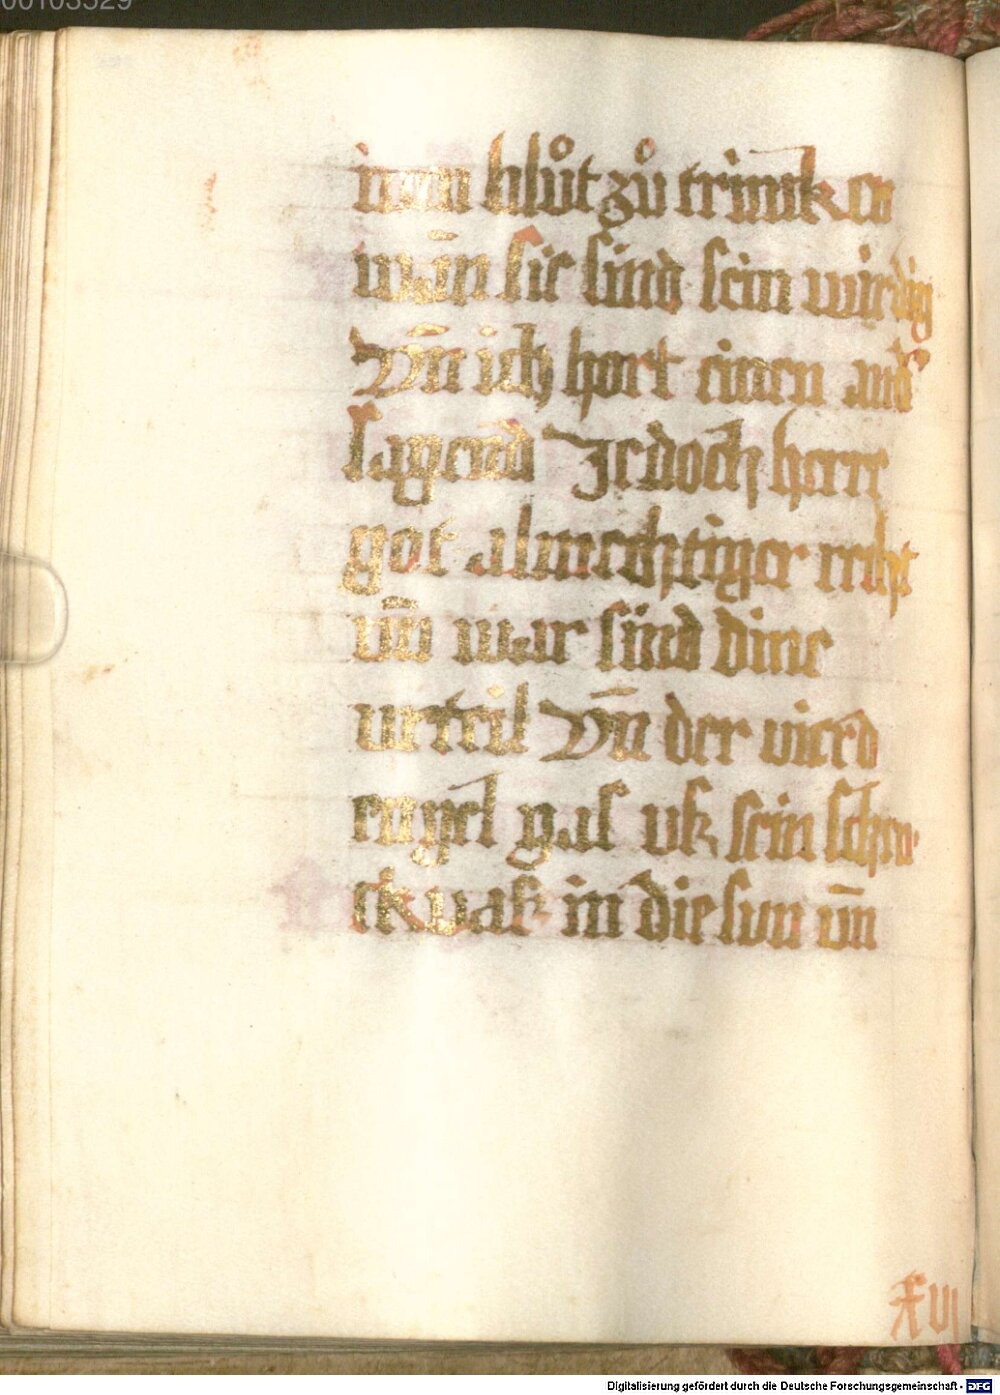 00103529
inen blůt zů trinnken
wān sie sind sein wirdig
Vn̄ ich hort einen and
sagend Jedoch herre
got almechtiger recht
vn̄ war sind dine
urteil Vn̄ der vierd
engel gas vß sein schra
ckvaß in die sun vn̄
XVI
Digitalisierung gefördert durch die Deutsche Forschungsgemeinschaft - DFG